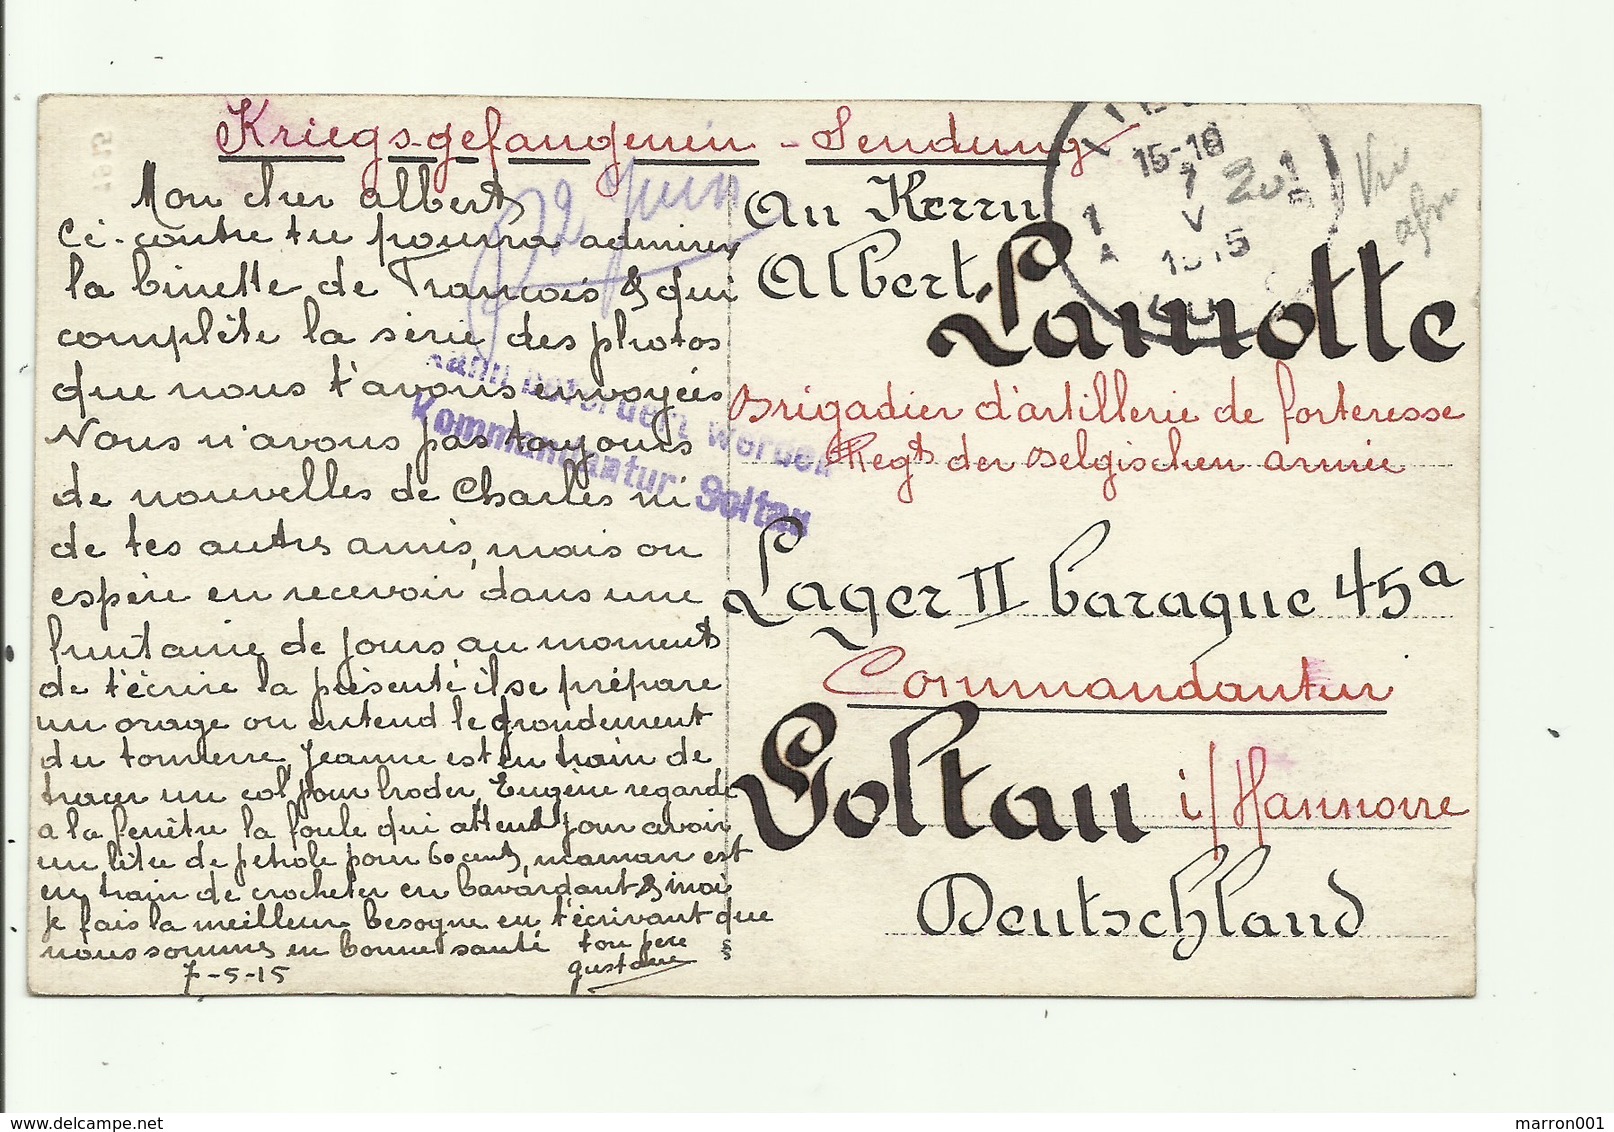 Kriegs-gefangenen-Sendung
Mon cher Albert
Ci-contre tu pourra admirer
la binette de François & qui
complète la série des photos
que nous t'avons envoyées
Nous n'avons pas toujours
de nouvelles de Charles ni
de tes autres amis, mais on
espère en recevoir dans une
huitaine de jours au moment
de t'écrire la présente il se prépare
un orage on entend le grondement
du tonnerre, Jeanne est en train de
tracer un col pour broder, Eugène regarde
a la fenêtre la foule qui attend pour avoir
un litre de pétrole pour 60 cent, maman est
en train de crocheter en bavardant & moi
je fais la meilleur besogne en t'écrivant que
nous sommes en bonne santé ton père
7-5-15 Gustave
22 juin
Kann befördert werden
Kommandantur Soltau
15-18
7
V
1915
201
An Herrn
Albert Lamotte
Brigadier d'artillerie de forteresse
Regt der Belgischen armée
Lager II baraque 45a
Commandantur
Soltau i/Hannovre
Deutschland
1915
marron001